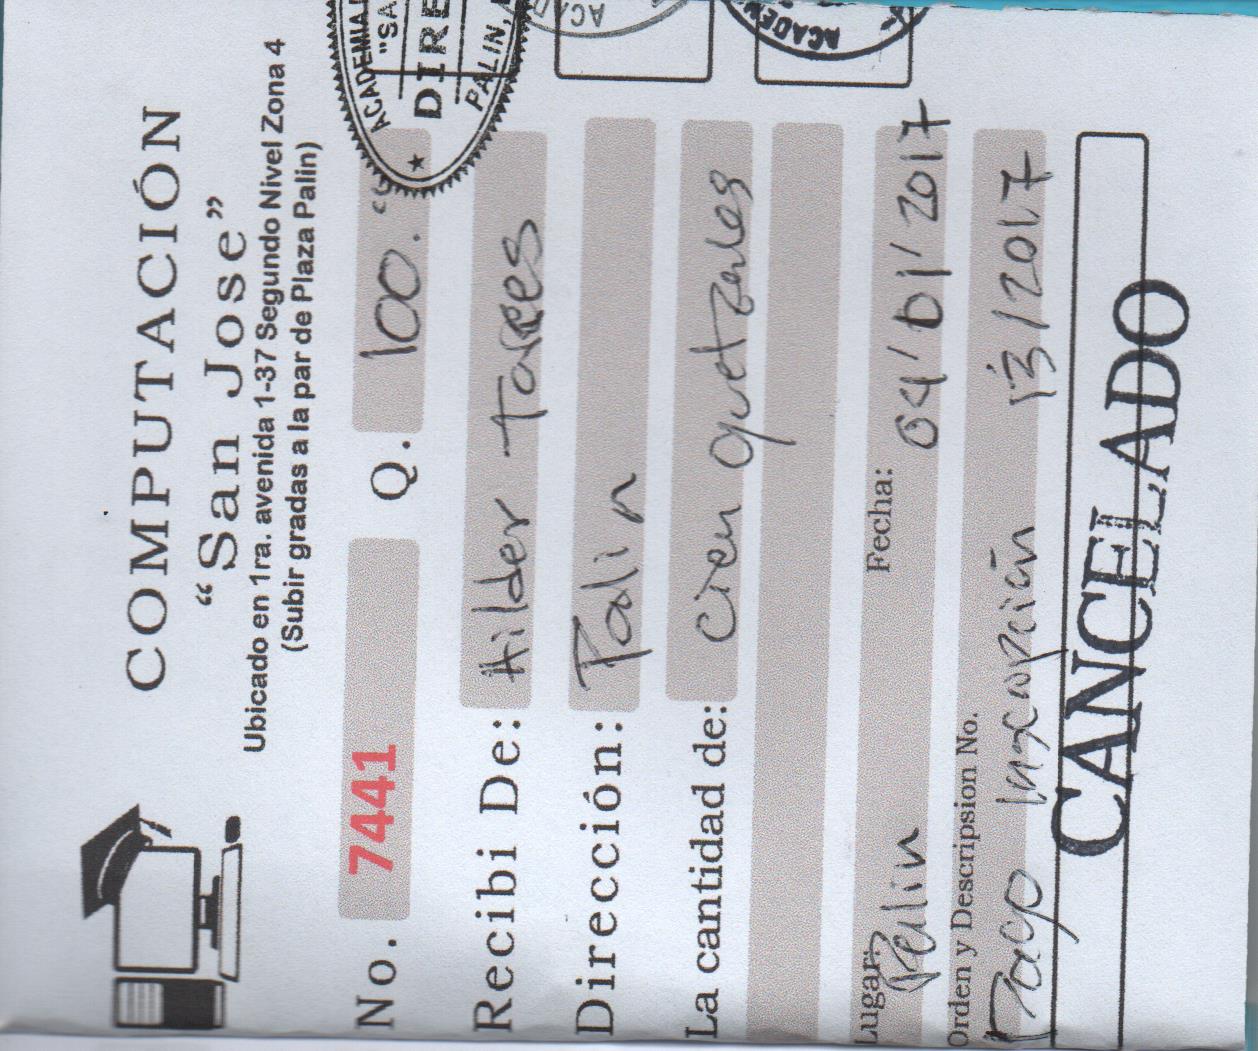 COMPUTACIÓN
“San Jose”
Ubicado en 1ra. avenida 1-37 Segundo Nivel Zona 4
(Subir gradas a la par de Plaza Palin)
No. 7441 Q. 100.
ACADEMIA
"SA
DIRE
PALIN,
Recibi De: Hilder
Dirección: Palin
ACAD
La cantidad de: cien quetzales
ACADEM
Lugar: Palin Fecha: 04/01/2017
Orden y Descripsion No.
Pago Inscripción 13/2017
CANCELADO